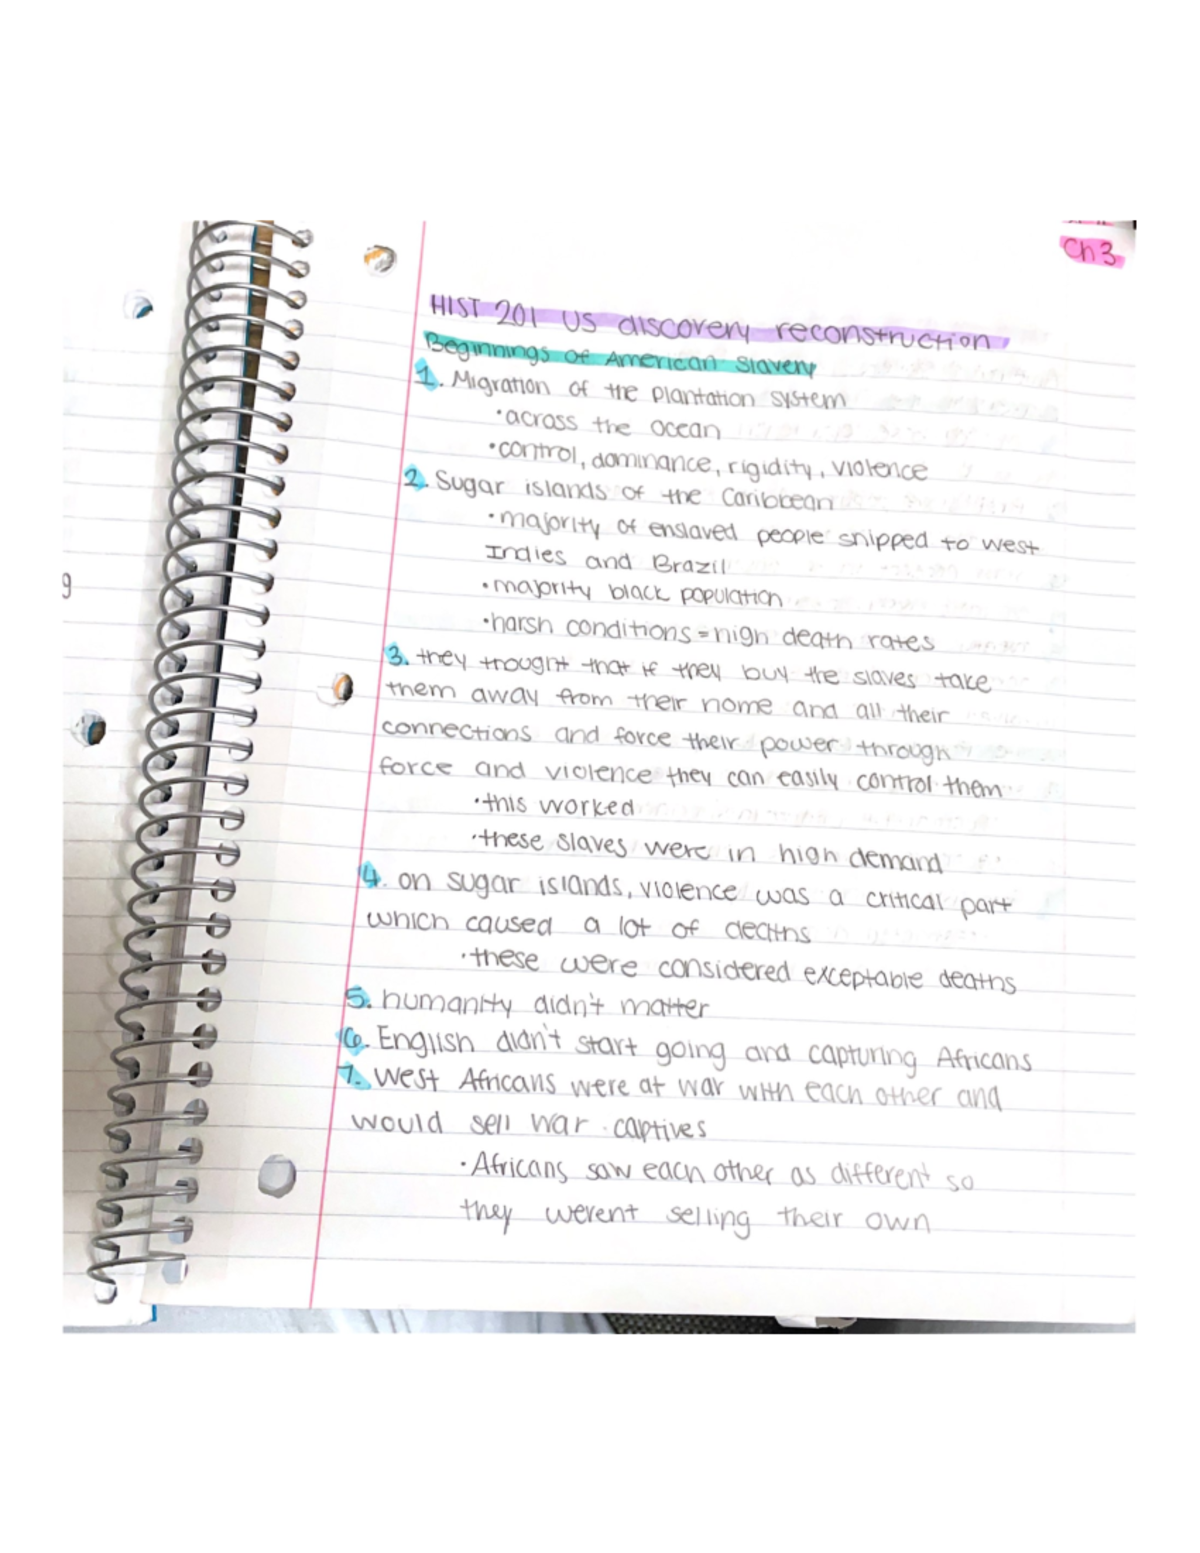 Ch 3
HIST 201 US discovery reconstruction
Beginnings of American Slavery
1. Migration of the Plantation system
•across the ocean
•control, dominance, rigidity, violence
2. Sugar islands of the Caribbean
•majority of enslaved people shipped to west
Indies and Brazil
•majority black population
•harsh conditions = high death rates
3. they thought that if they buy the slaves take
them away from their home and all their
connections and force their power through
force and violence they can easily control them
•this worked
•these slaves were in high demand
4. on sugar islands, violence was a critical part
which caused a lot of deaths
•these were considered exceptable deaths
5. humanity didn't matter
6. English didn't start going and capturing Africans
7. West Africans were at war with each other and
would sell war captives
•Africans saw each other as different so
they werent selling their own
g